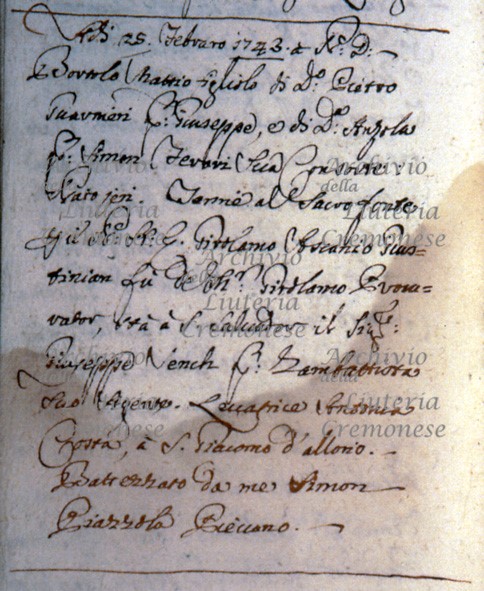 Adi 25. Febraro 1743. a N.D.
Bortolo Mattio figliolo di D.º Pietro
Guarneri q: Giuseppe, e di D.ª Anzola
q: Simon Ferari sua Consorte:
Nato jeri. Tenne al Sacro fonte
il N. H. E. Girolamo Ascanio Gius=
tinian fù de Gir. Girolamo Procu=
rator, stà à S. Salvador il Sig.:
Giuseppe Vench q: Zambattista
suo Agente. Levatrice Antonia
Costa, à S. Giacomo d'allorio.
Battezzato da me Simon
Piazzola Pievano.
Archivio
della
Liuteria
Cremonese
Archivio
della
Liuteria
Cremonese
Archivio
della
Liuteria
Cremonese